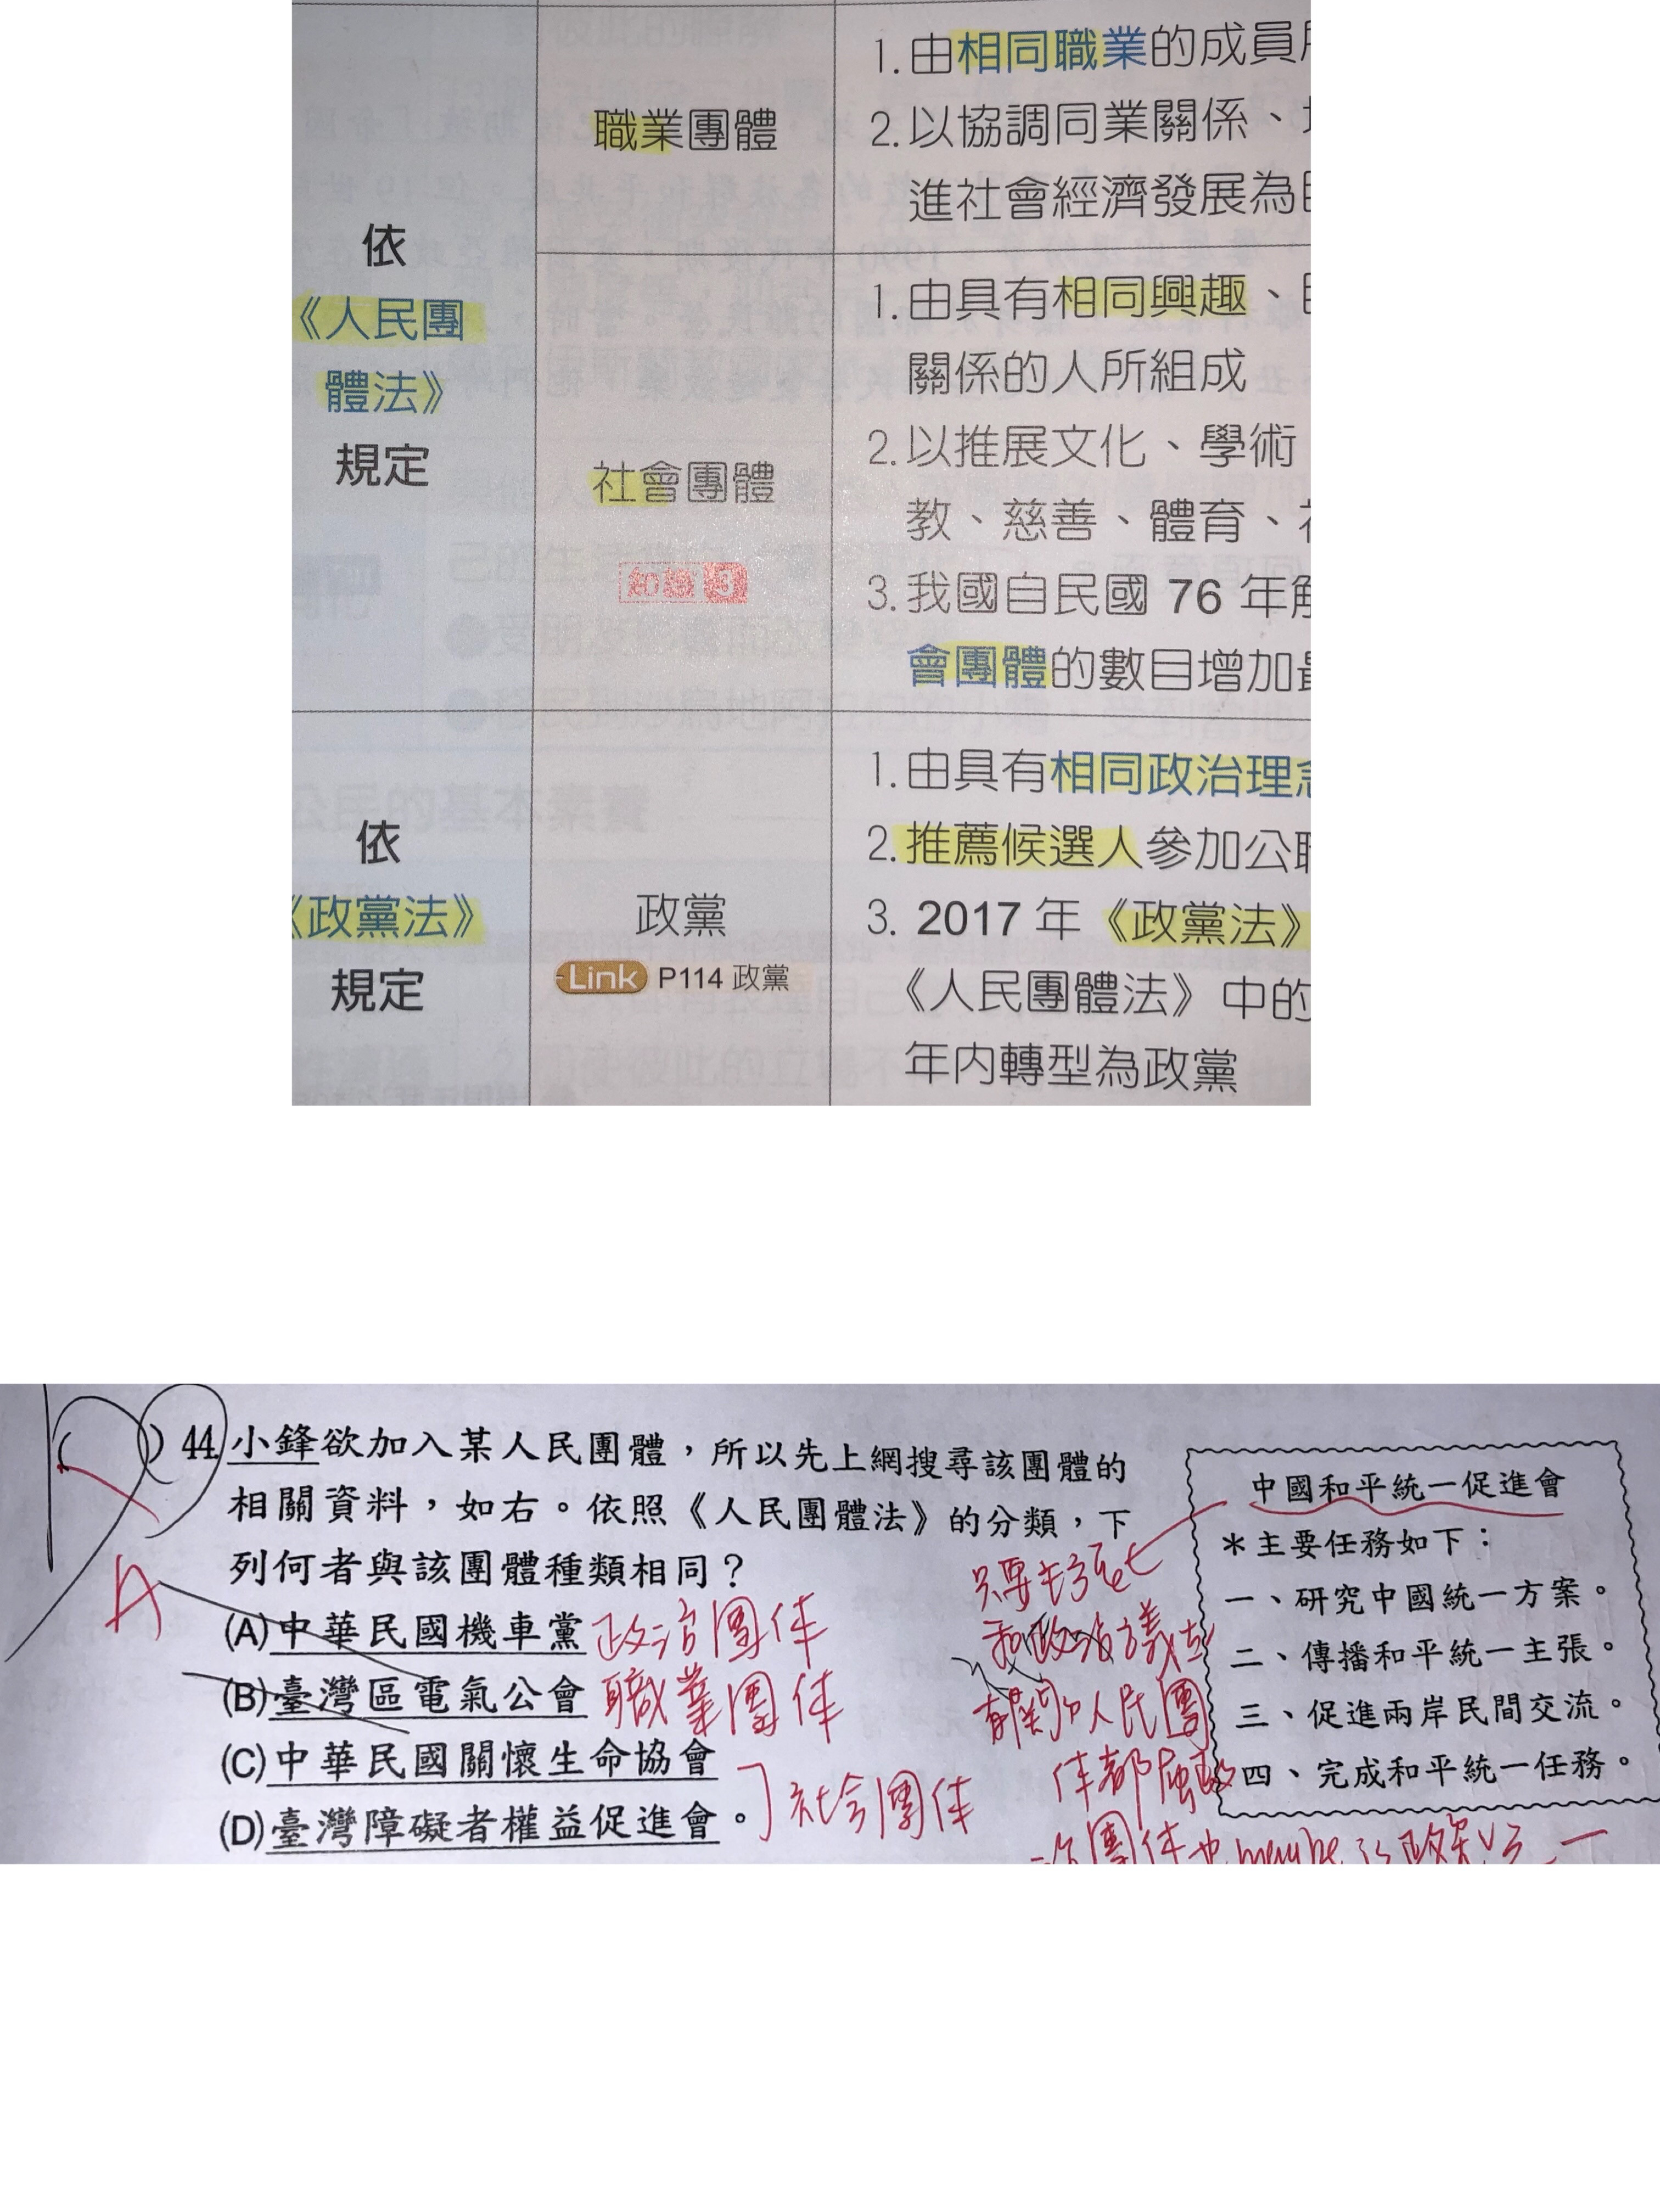 依
《人民團
體法》
規定
職業團體
1.由相同職業的成員
2.以協調同業關係、
進社會經濟發展為
社會團體
知識 3
1.由具有相同興趣、
關係的人所組成
2.以推展文化、學術
教、慈善、體育、
3.我國自民國 76 年
會團體的數目增加
依
《政黨法》
規定
政黨
Link P114 政黨
1.由具有相同政治理
2.推薦候選人參加公
3. 2017 年《政黨法》
《人民團體法》中的
年內轉型為政黨
D
A
( ) 44.小鋒欲加入某人民團體，所以先上網搜尋該團體的
相關資料，如右。依照《人民團體法》的分類，下
列何者與該團體種類相同？
(A)中華民國機車黨 政治團体
(B)臺灣區電氣公會 職業團体
(C)中華民國關懷生命協會
(D)臺灣障礙者權益促進會。
社会團体
只要
和政治議
有關的人民團
体都屬政
治團体也maybe
中國和平統一促進會
＊主要任務如下：
一、研究中國統一方案。
二、傳播和平統一主張。
三、促進兩岸民間交流。
四、完成和平統一任務。